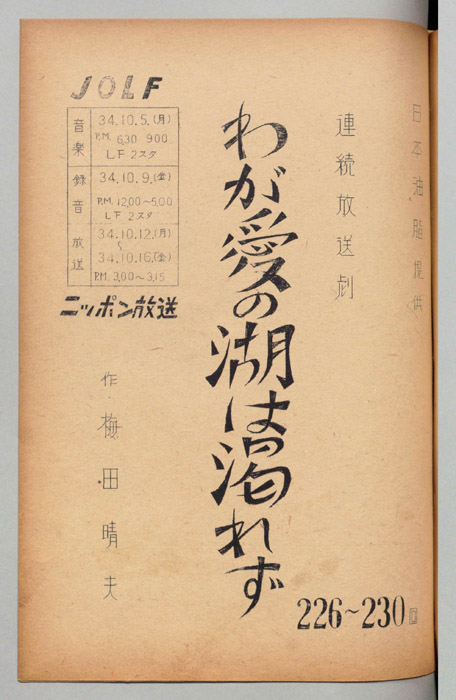 日本油脂提供
連続放送劇
わが愛の湖は涸れず
226～230回
JOLF
音楽 34.10.5.(月)
P.M. 6.30 9.00
LF 2スタ
録音 34.10.9.(金)
P.M. 12.00～5.00
LF 2スタ
放送 34.10.12.(月)
～
34.10.16.(金)
P.M. 3.00～3.15
ニッポン放送
作 梅田晴夫